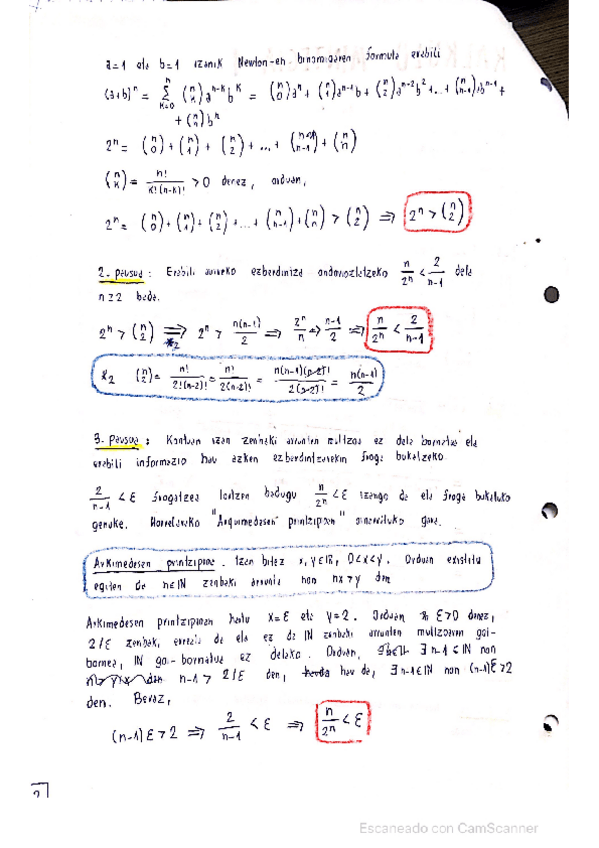 a=1 eta b=1 izanik Newton-en binomioaren formula erabili
(a+b)ⁿ = Σ_{k=0}^{n} (n k) a^{n-k} b^k = (n 0)aⁿ + (n 1)a^{n-1}b + (n 2)a^{n-2}b² + ... + (n n-1)ab^{n-1} +
+ (n n)bⁿ
2ⁿ = (n 0) + (n 1) + (n 2) + ... + (n n-1) + (n n)
(n k) = n!/(k!(n-k)!) > 0 denez, orduan,
2ⁿ = (n 0) + (n 1) + (n 2) + ... + (n n-1) + (n n) > (n 2) ⇒ 2ⁿ > (n 2)
2. pausua : Erabili aurreko ezberdintza ondorioztatzeko n/2ⁿ < 2/(n-1) dela
n≥2 bada.
2ⁿ > (n 2) ⇒*₂ 2ⁿ > n(n-1)/2 ⇒ 2ⁿ/n > (n-1)/2 ⇒ n/2ⁿ < 2/(n-1)
*₂ (n 2) = n!/(2!(n-2)!) = n!/(2(n-2)!) = n(n-1)(n-2)!/(2(n-2)!) = n(n-1)/2
3. Pausua : Kontuan izan zenbaki arrunten multzoa ez dela bornatua eta
erabili informazio hau azken ezberdintzarekin froga bukatzeko
2/(n-1) < ε frogatzea lortzen badugu n/2ⁿ < ε izango da eta froga bukatuko
genuke. Horretarako "Arquimedesen printzipioan" oinarrituko gara.
Arkimedesen printzipioa. Izan bitez x, y∈ℝ, 0<x<y. Orduan existitu
egiten da n∈ℕ zenbaki arrunta non nx>y den
Arkimedesen printzipioan hartu x=ε eta y=2. Orduan ε>0 denez,
2/ε zenbaki erreala da eta ez da ℕ zenbaki arrunten multzoaren goi-
bornea, ℕ goi-bornatua ez delako. Orduan, ∃ n-1 ∈ ℕ non
n-1 > 2/ε den, hau da, ∃ n-1∈ℕ non (n-1)ε>2
den. Beraz,
(n-1)ε>2 ⇒ 2/(n-1) < ε ⇒ n/2ⁿ < ε
Escaneado con CamScanner